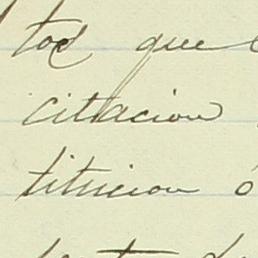 tod que
citacion
titucion ó